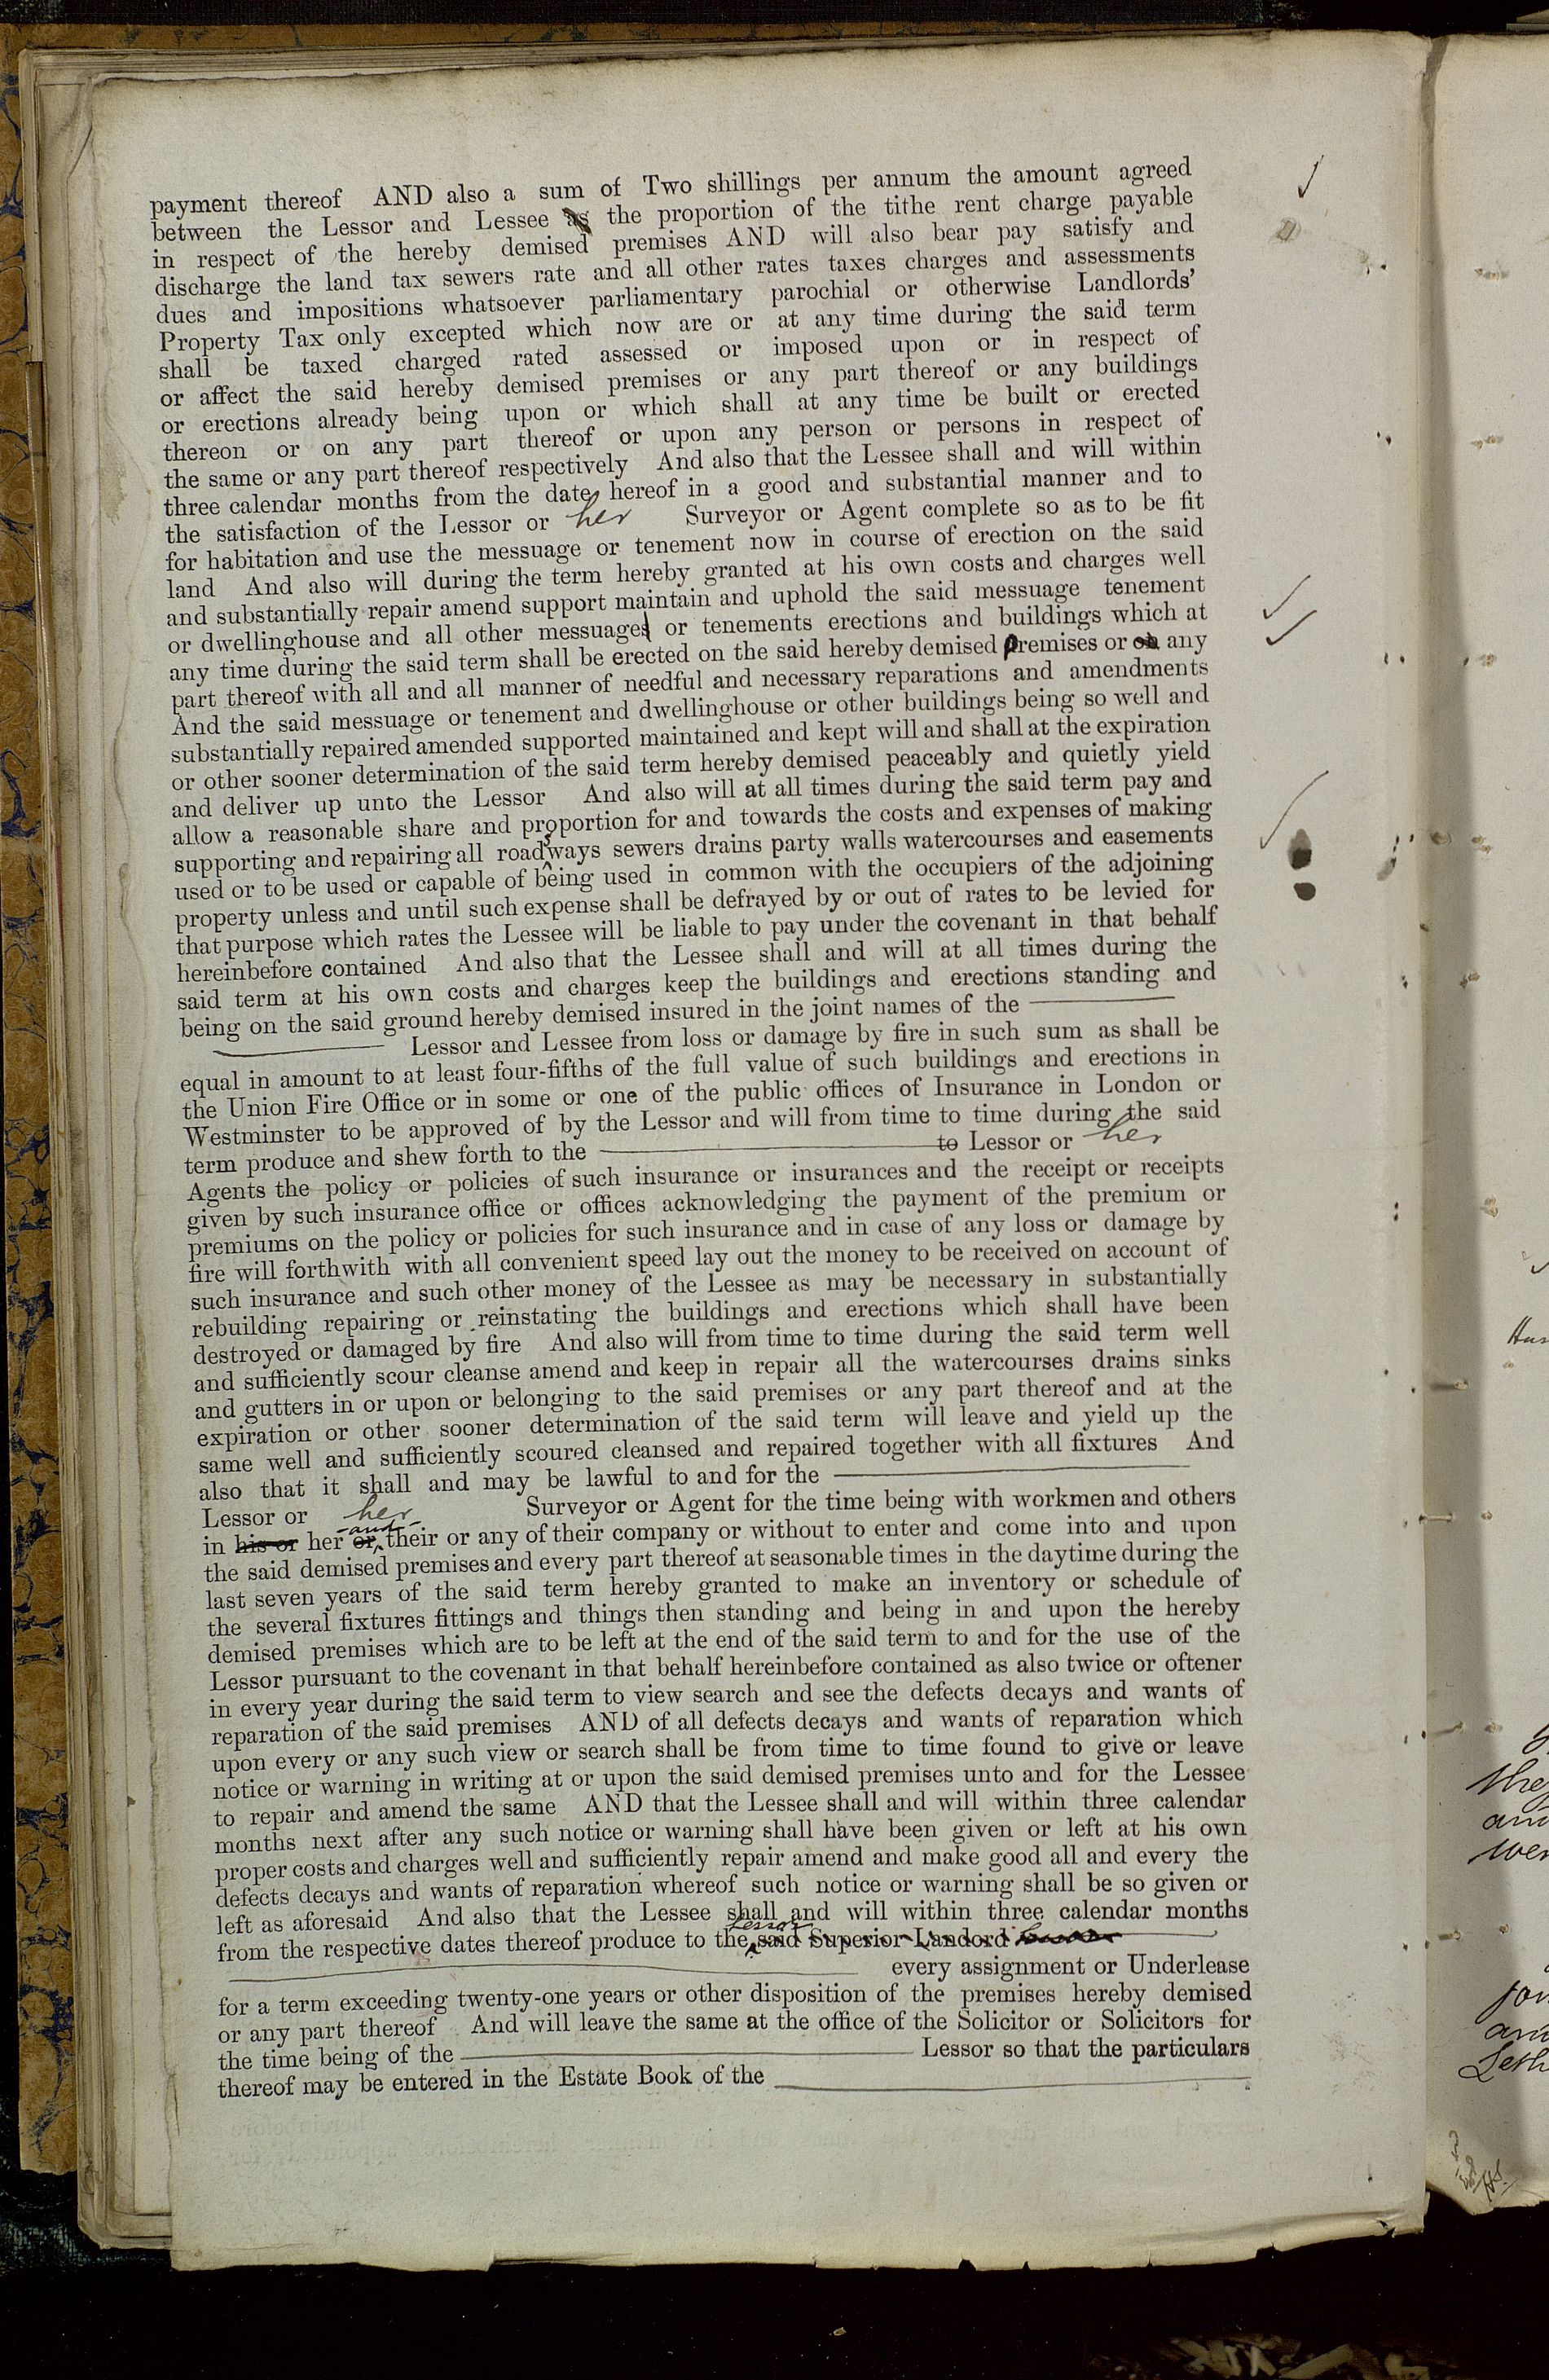 payment thereof AND also a sum of Two shillings per annum the amount agreed
between the Lessor and Lessee as the proportion of the tithe rent charge payable
in respect of the hereby demised premises AND will also bear pay satisfy and
discharge the land tax sewers rate and all other rates taxes charges and assessments
dues and impositions whatsoever parliamentary parochial or otherwise Landlords'
Property Tax only excepted which now are or at any time during the said term
shall be taxed charged rated assessed or imposed upon or in respect of
or affect the said hereby demised premises or any part thereof or any buildings
or erections already being upon or which shall at any time be built or erected
thereon or on any part thereof or upon any person or persons in respect of
the same or any part thereof respectively And also that the Lessee shall and will within
three calendar months from the date hereof in a good and substantial manner and to
the satisfaction of the Lessor or her Surveyor or Agent complete so as to be fit
for habitation and use the messuage or tenement now in course of erection on the said
land And also will during the term hereby granted at his own costs and charges well
and substantially repair amend support maintain and uphold the said messuage tenement
or dwellinghouse and all other messuages or tenements erections and buildings which at
any time during the said term shall be erected on the said hereby demised premises or on any
part thereof with all and all manner of needful and necessary reparations and amendments
And the said messuage or tenement and dwellinghouse or other buildings being so well and
substantially repaired amended supported maintained and kept will and shall at the expiration
or other sooner determination of the said term hereby demised peaceably and quietly yield
and deliver up unto the Lessor And also will at all times during the said term pay and
allow a reasonable share and proportion for and towards the costs and expenses of making
supporting and repairing all roads ways sewers drains party walls watercourses and easements
used or to be used or capable of being used in common with the occupiers of the adjoining
property unless and until such expense shall be defrayed by or out of rates to be levied for
that purpose which rates the Lessee will be liable to pay under the covenant in that behalf
hereinbefore contained And also that the Lessee shall and will at all times during the
said term at his own costs and charges keep the buildings and erections standing and
being on the said ground hereby demised insured in the joint names of the
Lessor and Lessee from loss or damage by fire in such sum as shall be
equal in amount to at least four-fifths of the full value of such buildings and erections in
the Union Fire Office or in some or one of the public offices of Insurance in London or
Westminster to be approved of by the Lessor and will from time to time during the said
term produce and shew forth to the to Lessor or her
Agents the policy or policies of such insurance or insurances and the receipt or receipts
given by such insurance office or offices acknowledging the payment of the premium or
premiums on the policy or policies for such insurance and in case of any loss or damage by
fire will forthwith with all convenient speed lay out the money to be received on account of
such insurance and such other money of the Lessee as may be necessary in substantially
rebuilding repairing or reinstating the buildings and erections which shall have been
destroyed or damaged by fire And also will from time to time during the said term well
and sufficiently scour cleanse amend and keep in repair all the watercourses drains sinks
and gutters in or upon or belonging to the said premises or any part thereof and at the
expiration or other sooner determination of the said term will leave and yield up the
same well and sufficiently scoured cleansed and repaired together with all fixtures And
also that it shall and may be lawful to and for the
Lessor or her Surveyor or Agent for the time being with workmen and others
in his or her or and their or any of their company or without to enter and come into and upon
the said demised premises and every part thereof at seasonable times in the daytime during the
last seven years of the said term hereby granted to make an inventory or schedule of
the several fixtures fittings and things then standing and being in and upon the hereby
demised premises which are to be left at the end of the said term to and for the use of the
Lessor pursuant to the covenant in that behalf hereinbefore contained as also twice or oftener
in every year during the said term to view search and see the defects decays and wants of
reparation of the said premises AND of all defects decays and wants of reparation which
upon every or any such view or search shall be from time to time found to give or leave
notice or warning in writing at or upon the said demised premises unto and for the Lessee
to repair and amend the same AND that the Lessee shall and will within three calendar
months next after any such notice or warning shall have been given or left at his own
proper costs and charges well and sufficiently repair amend and make good all and every the
defects decays and wants of reparation whereof such notice or warning shall be so given or
left as aforesaid And also that the Lessee shall and will within three calendar months
from the respective dates thereof produce to the Lessor said Superior Landord
every assignment or Underlease
for a term exceeding twenty-one years or other disposition of the premises hereby demised
or any part thereof And will leave the same at the office of the Solicitor or Solicitors for
the time being of the Lessor so that the particulars
thereof may be entered in the Estate Book of the